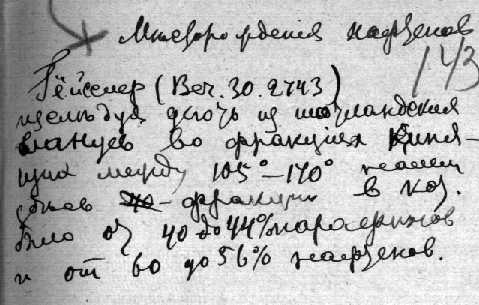 Месторождения нафтенов
143
Гейслер (Ber. 30. 2743)
деготь из шотландских
сланцев во фракциях кипя-
щих между 105°-170° нашел
фракции в
было от 40 до 44% парафинов
и от 60 до 56% нафтенов.